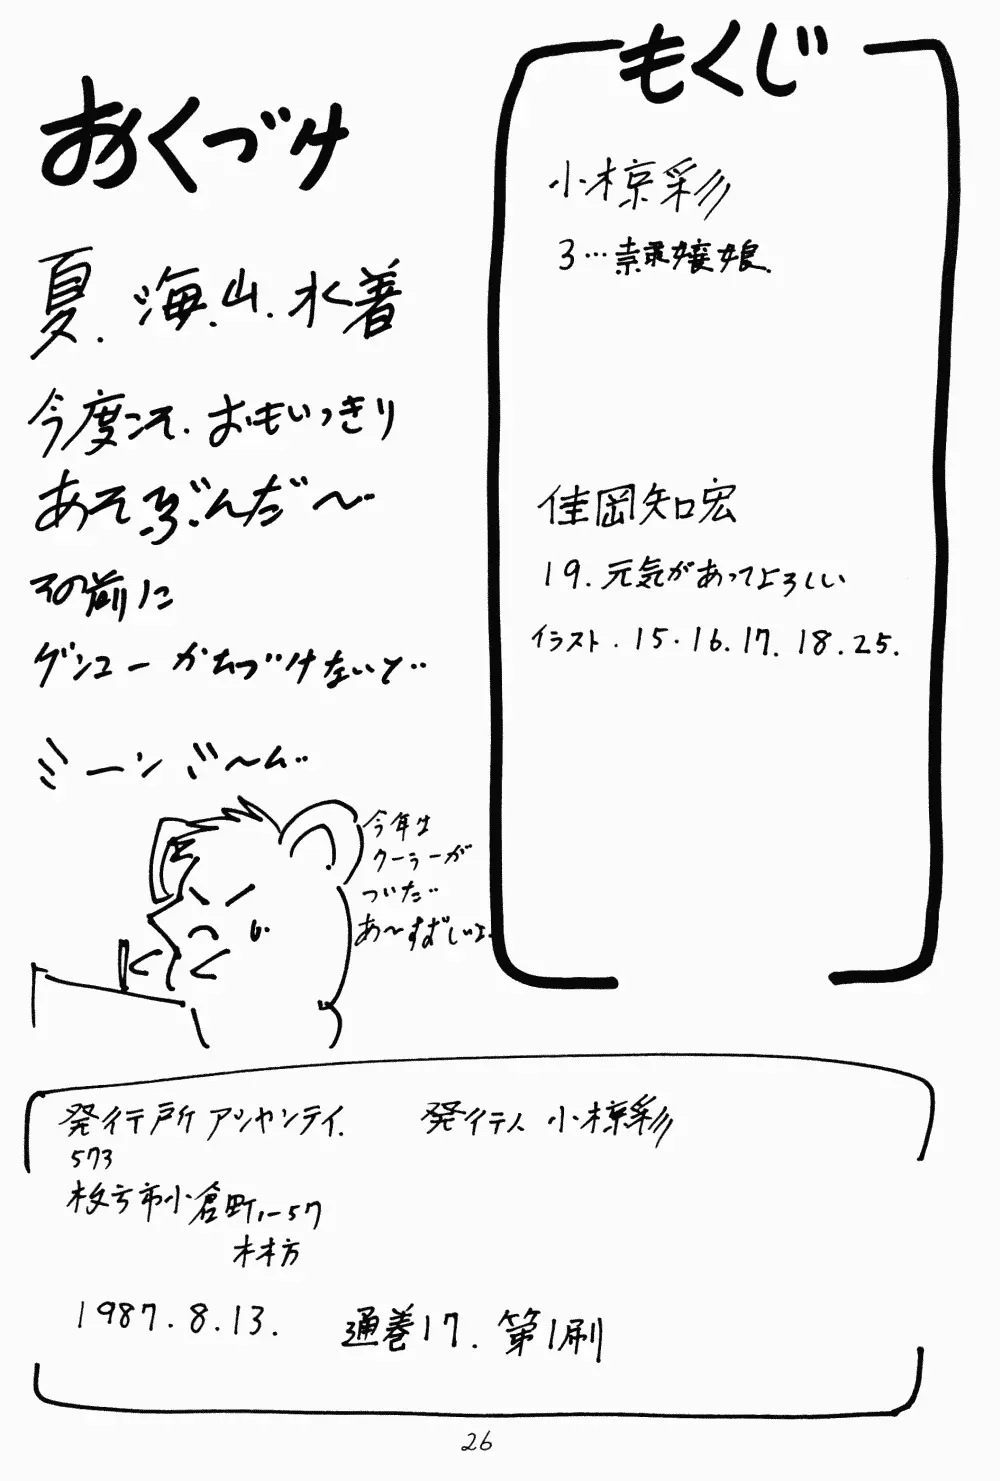 もくじ
小椋彩
3…隷嬢娘.
佳岡知宏
19.元気があってよろしい
イラスト.15.16.17.18.25.
おくづけ
夏.海.山.水着
今度こそ.おもいっきり
あそぶんだ〜
その前に
ゲンコーかたづけないと‥
ミーンミ〜ん‥
今年は
クーラーが
ついた‥
あ〜すずしいよ.
発行所アシャンティ. 発行人 小椋彩
573
枚方市小倉町11-57
林方
1987.8.13. 通巻17.第1刷
26